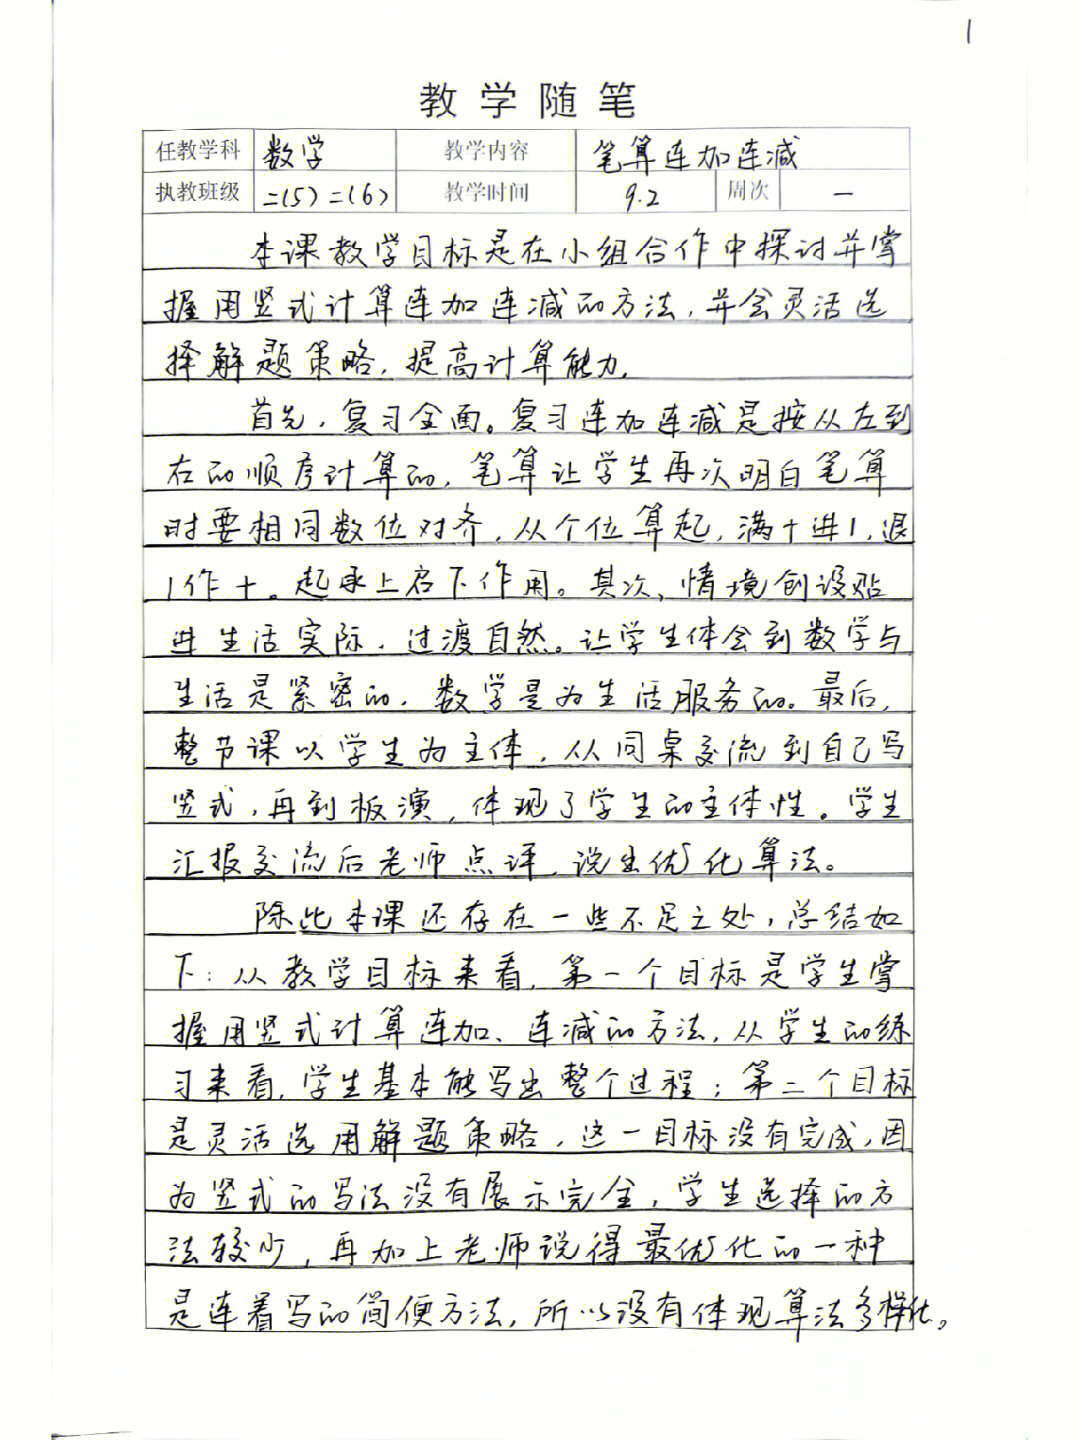 1
教学随笔
任教学科 数学 教学内容 笔算连加连减
执教班级 二(5)二(6) 教学时间 9.2 周次 一
本课教学目标是在小组合作中探讨并掌
握用竖式计算连加连减的方法,并会灵活选
择解题策略,提高计算能力.
首先,复习全面。复习连加连减是按从左到
右的顺序计算的,笔算让学生再次明白笔算
时要相同数位对齐,从个位算起,满十进1,退
1作十。起承上启下作用。其次、情境创设贴
进生活实际,过渡自然。让学生体会到数学与
生活是紧密的,数学是为生活服务的。最后,
整节课以学生为主体,从同桌交流到自己写
竖式,再到板演,体现了学生的主体性。学生
汇报交流后老师点评,说出优化算法。
除此本课还存在一些不足之处,总结如
下:从教学目标来看,第一个目标是学生掌
握用竖式计算连加、连减的方法,从学生的练
习来看,学生基本能写出整个过程;第二个目标
是灵活选用解题策略,这一目标没有完成,因
为竖式的写法没有展示完全,学生选择的方
法较少,再加上老师说得最优化的一种
是连着写的简便方法,所以没有体现算法多样化。